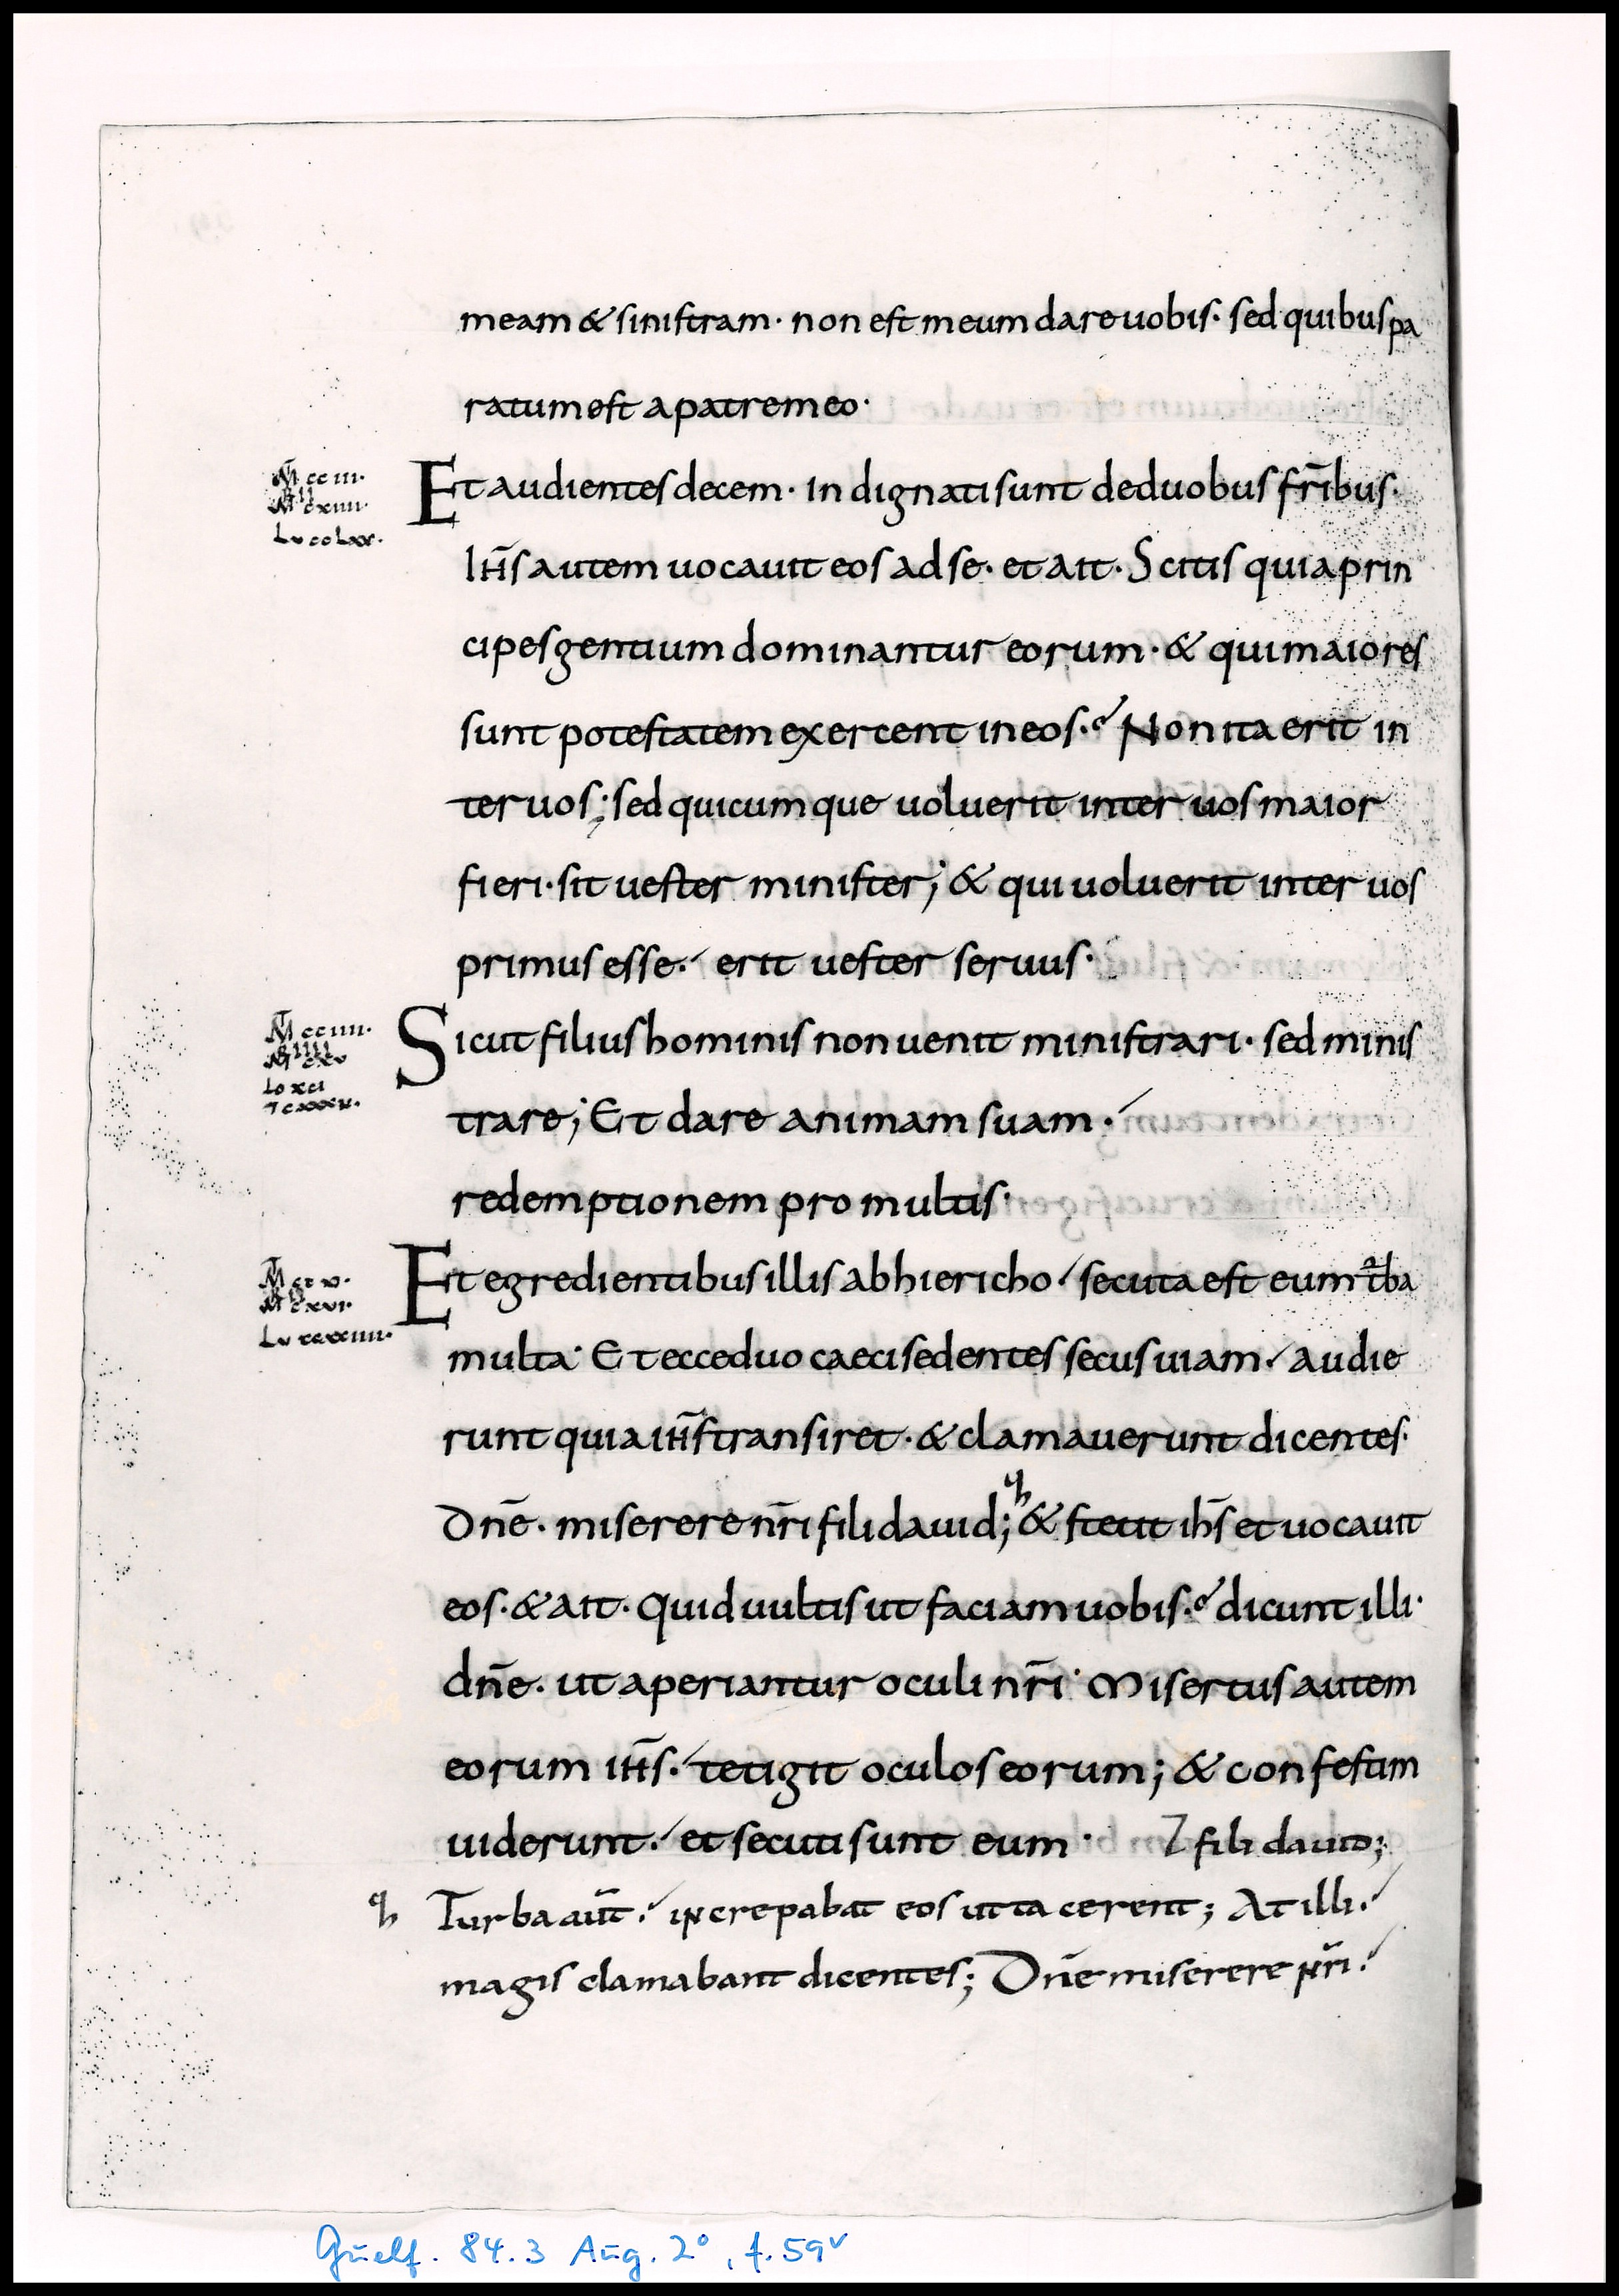 meam & sinistram · non est meum dare uobis · sed quibus pa
ratum est a patre meo ·
M̄ cc iii ·
MR cxiiii ·
Lu cclxx ·
Et audientes decem · Indignati sunt de duobus fr̄ibus ·
Ih̄s autem uocauit eos ad se · et ait · Scitis quia prin
cipes gentium dominantur eorum · & qui maiores
sunt potestatem exercent in eos · Non ita erit in
ter uos ; sed quicumque uoluerit inter uos maior
fieri · sit uester minister ; & qui uoluerit inter uos
primus esse · erit uester seruus ·
M̄ cc iiii ·
MR cxv
Io xci
Sicut filius hominis non uenit ministrari · sed minis
trare ; Et dare animam suam ·
redemptionem pro multis ·
M̄ cc v ·
MR cxvi ·
Et egredientibus illis ab hiericho · secuta est eum tba
multa · Et ecce duo caeci sedentes secus uiam · audie
runt quia ih̄s transiret · & clamauerunt dicentes ·
Dn̄e · miserere nr̄i fili dauid ; qh & stetit ih̄s et uocauit
eos · & ait · Quid uultis ut faciam uobis · dicunt illi ·
dn̄e · ut aperiantur oculi nr̄i · Misertus autem
eorum ih̄s · tetigit oculos eorum ; & confestim
uiderunt · et secuti sunt eum · fili dauid ;
qh Turba aut̄ · increpabat eos ut tacerent ; At illi ·
magis clamabant dicentes ; Dn̄e miserere nr̄i ·
Guelf. 84.3 Aug. 2°, f. 59v